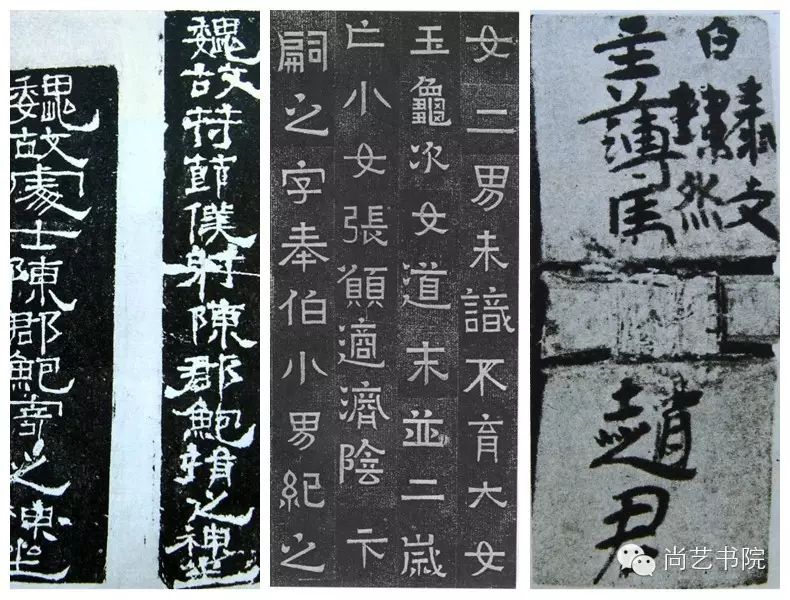 魏故持節僕射陳郡鮑捐之神坐
魏故處士陳郡鮑寄之神坐
女二男未識不育大女
玉龜次女道末並二歲
亡小女張願適濟陰卞
嗣之字奉伯小男紀之
泰文
白
然
主薄馬
趙君
尚艺书院